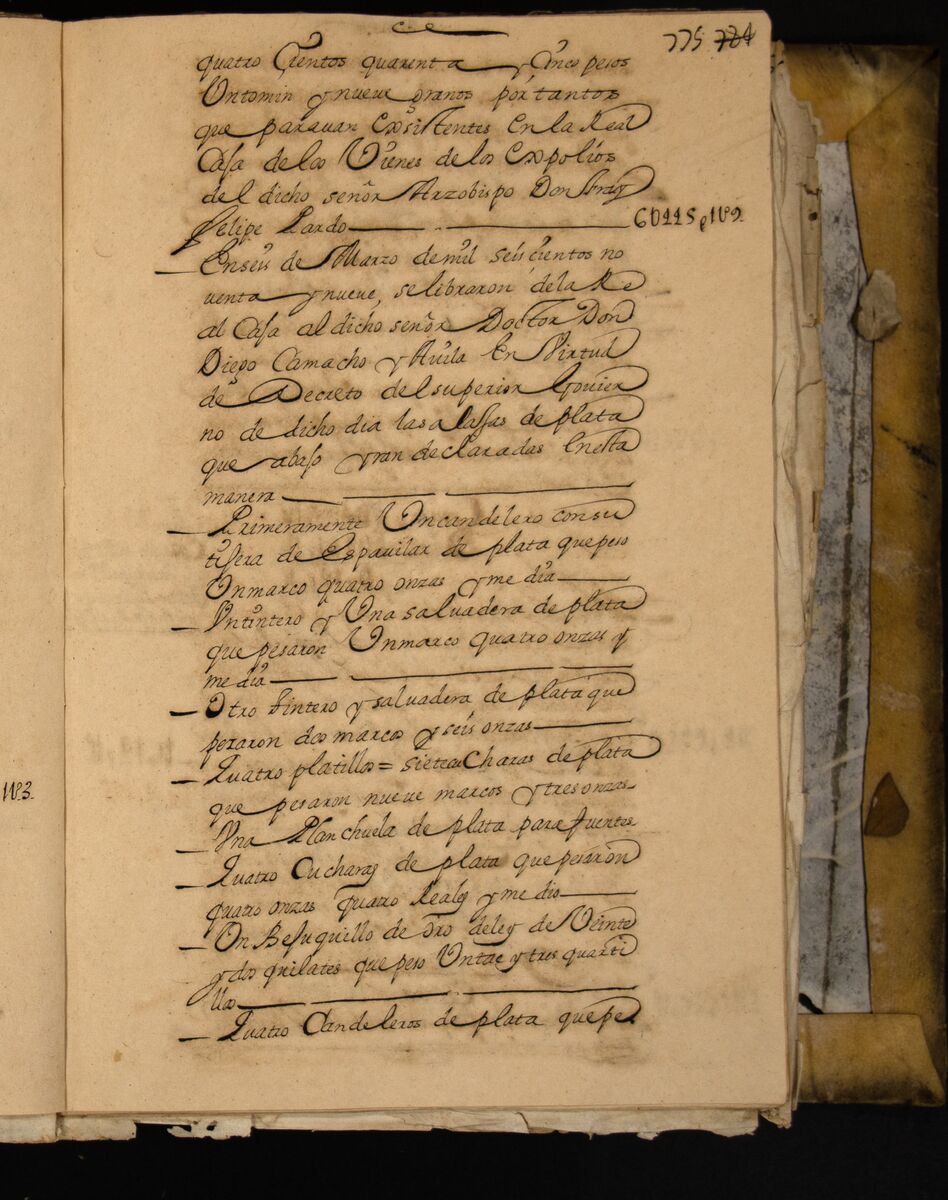 775 774
quatro Cientos quarenta y Cinco pesos
Un tomin y nueve granos por tantos
que parauan Exsistentes En la Real
Caſa de los Vienes de los Expolios
del dicho señor Arzobispo Don fray
Felipe Pardo
En seis de Marzo de mil seiscientos no
venta y nueve, se libraron de la Re
al Caſa al dicho señor Doctor Don
Diego Camacho y Auila En Virtud
de Decreto del superior Gouier
no de dicho dia las alaſas de plata
que abaſo yran declaradas En esta
manera
Primeramente Un candelero con su
tiſera de Espauilar de plata que peso
Un marco quatro onzas y media
Un tintero y Una saluadera de plata
que pesaron Un marco quatro onzas y
media
Otro tintero y saluadera de plata que
pezaron dos marcos y seis onzas
Quatro platillos = siete cucharas de plata
que pesaron nueve marcos y tres onzas
Una Planchuela de plata para fuentes
Quatro Cucharas de plata que pesaron
quatro onzas quatro Reales y medio
Un Beſuquillo de oro de ley de Veinte
y dos quilates que peso Un tae y tres quarti
llos
Quatro Candeleros de plata que pe
113